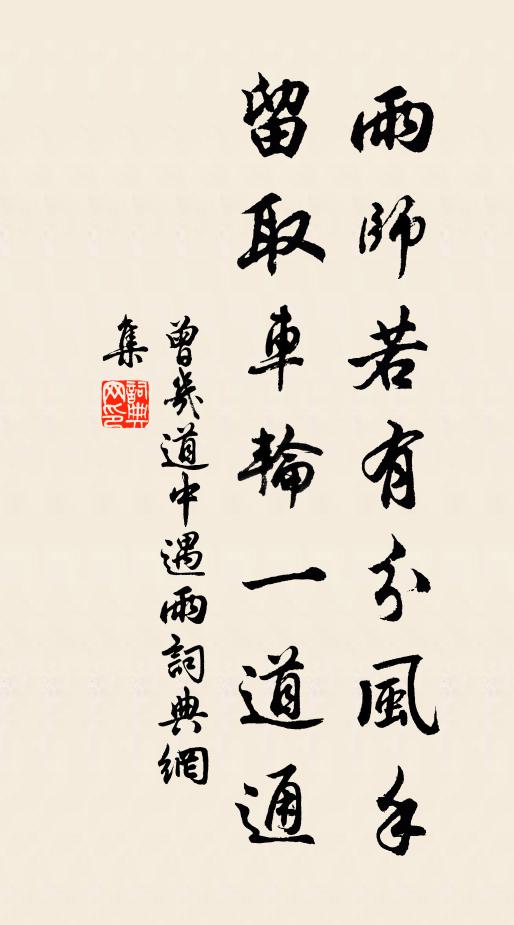 雨師若有分風手
留取車輪一道通
曾幾道中遇雨詞典網
集
詞典
网印